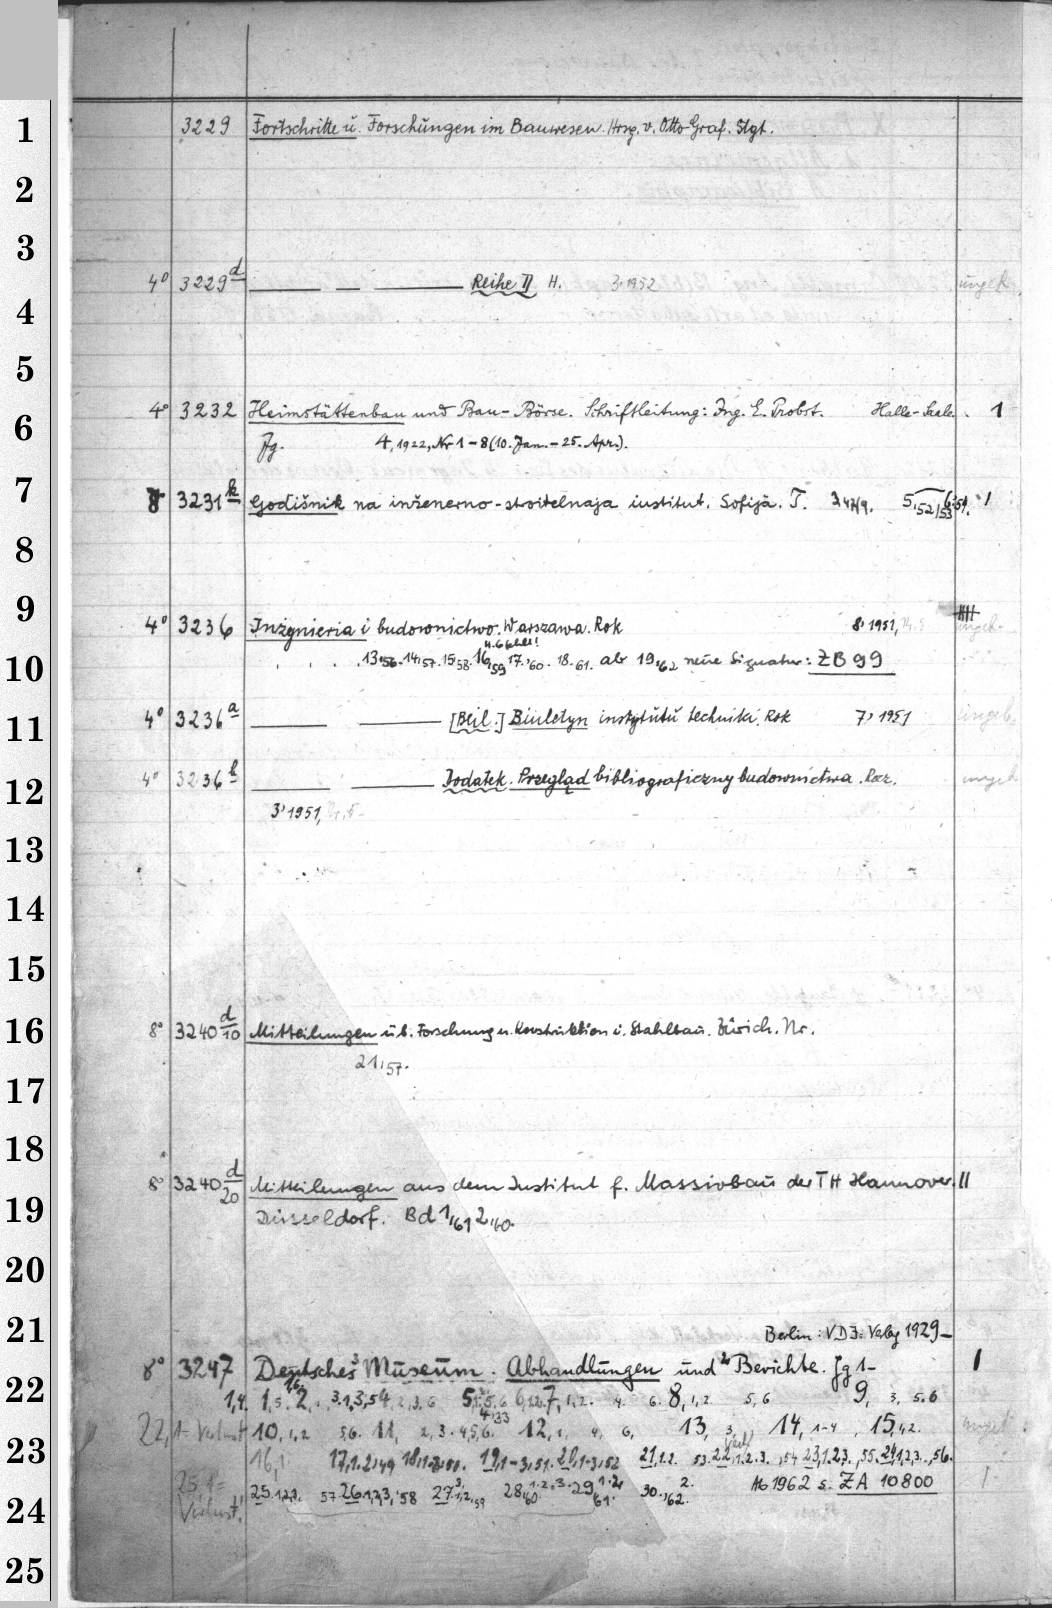 1
3229 Fortschritte u. Forschungen im Bauwesen. Hrsg. v. Otto Graf. Stgt.
2
3
4° 3229 d Reihe II H. 3, 1952 ungeb.
4
5
4° 3232 Heimstättenbau und Bau-Börse. Schriftleitung: Ing. E. Probst. Halle-Saale. 1
6
Jg. 4, 1922, Nr 1-8 (10. Jan. - 25. Apr.).
7
8 3231 k Godišnik na inženerno-stroitelnaja institut. Sofija. T. 3, 5, 52/53 6, 1
8
9
4° 3236 Inżynieria i budownictwo. Warszawa. Rok 8, 1951,
10
13,56. 14,57. 15,58. 16,59 17,'60. 18,61. ab 19,62 neue Signatur: ZB 99
11
4° 3236 a [Beil.] Biuletyn instytutu techniki. Rok 7, 1951 ungeb.
12
4° 3236 b Dodatek. Przegląd bibliograficzny budownictwa. Rocz. ungeb
3, 1951,
13
14
15
16
8° 3240 d/10 Mitteilungen üb. Forschung u. Konstruktion i. Stahlbau. Zürich. Nr.
21,57.
17
18
8° 3240 d/20 Mitteilungen aus dem Institut f. Massivbau der TH Hannover. II
19
Düsseldorf. Bd 1,61 2,60.
20
21
Berlin: VDI-Verlag 1929-
8° 3247 Deutsches Museum. Abhandlungen und Berichte. Jg 1- 1
22
1,4. 1,5. 2, 3.1,3,54 6. 8,1,2 5,6 9, 3, 5.6
22,1- Verlust 10,1,2 5,6. 11, 2,3.4,5,6. 12,1, 4, 6, 13, 3, 14, 1-4, 15,1,2.
23
16,1. 17,1.2,49 18,1-3,50. 19,1-3,51. 20,1-3,52 21,1.2. 53. 22,1.2.3.,54 23,1.2.3.,55. 24,1,2,3.,56.
25,1= Verlust! 25,1,2,3. 57 26,1,2,3,'58 27,1,2,59 28,60. 29,61. 30.,'62. 2. Ab 1962 s. ZA 10800
24
25